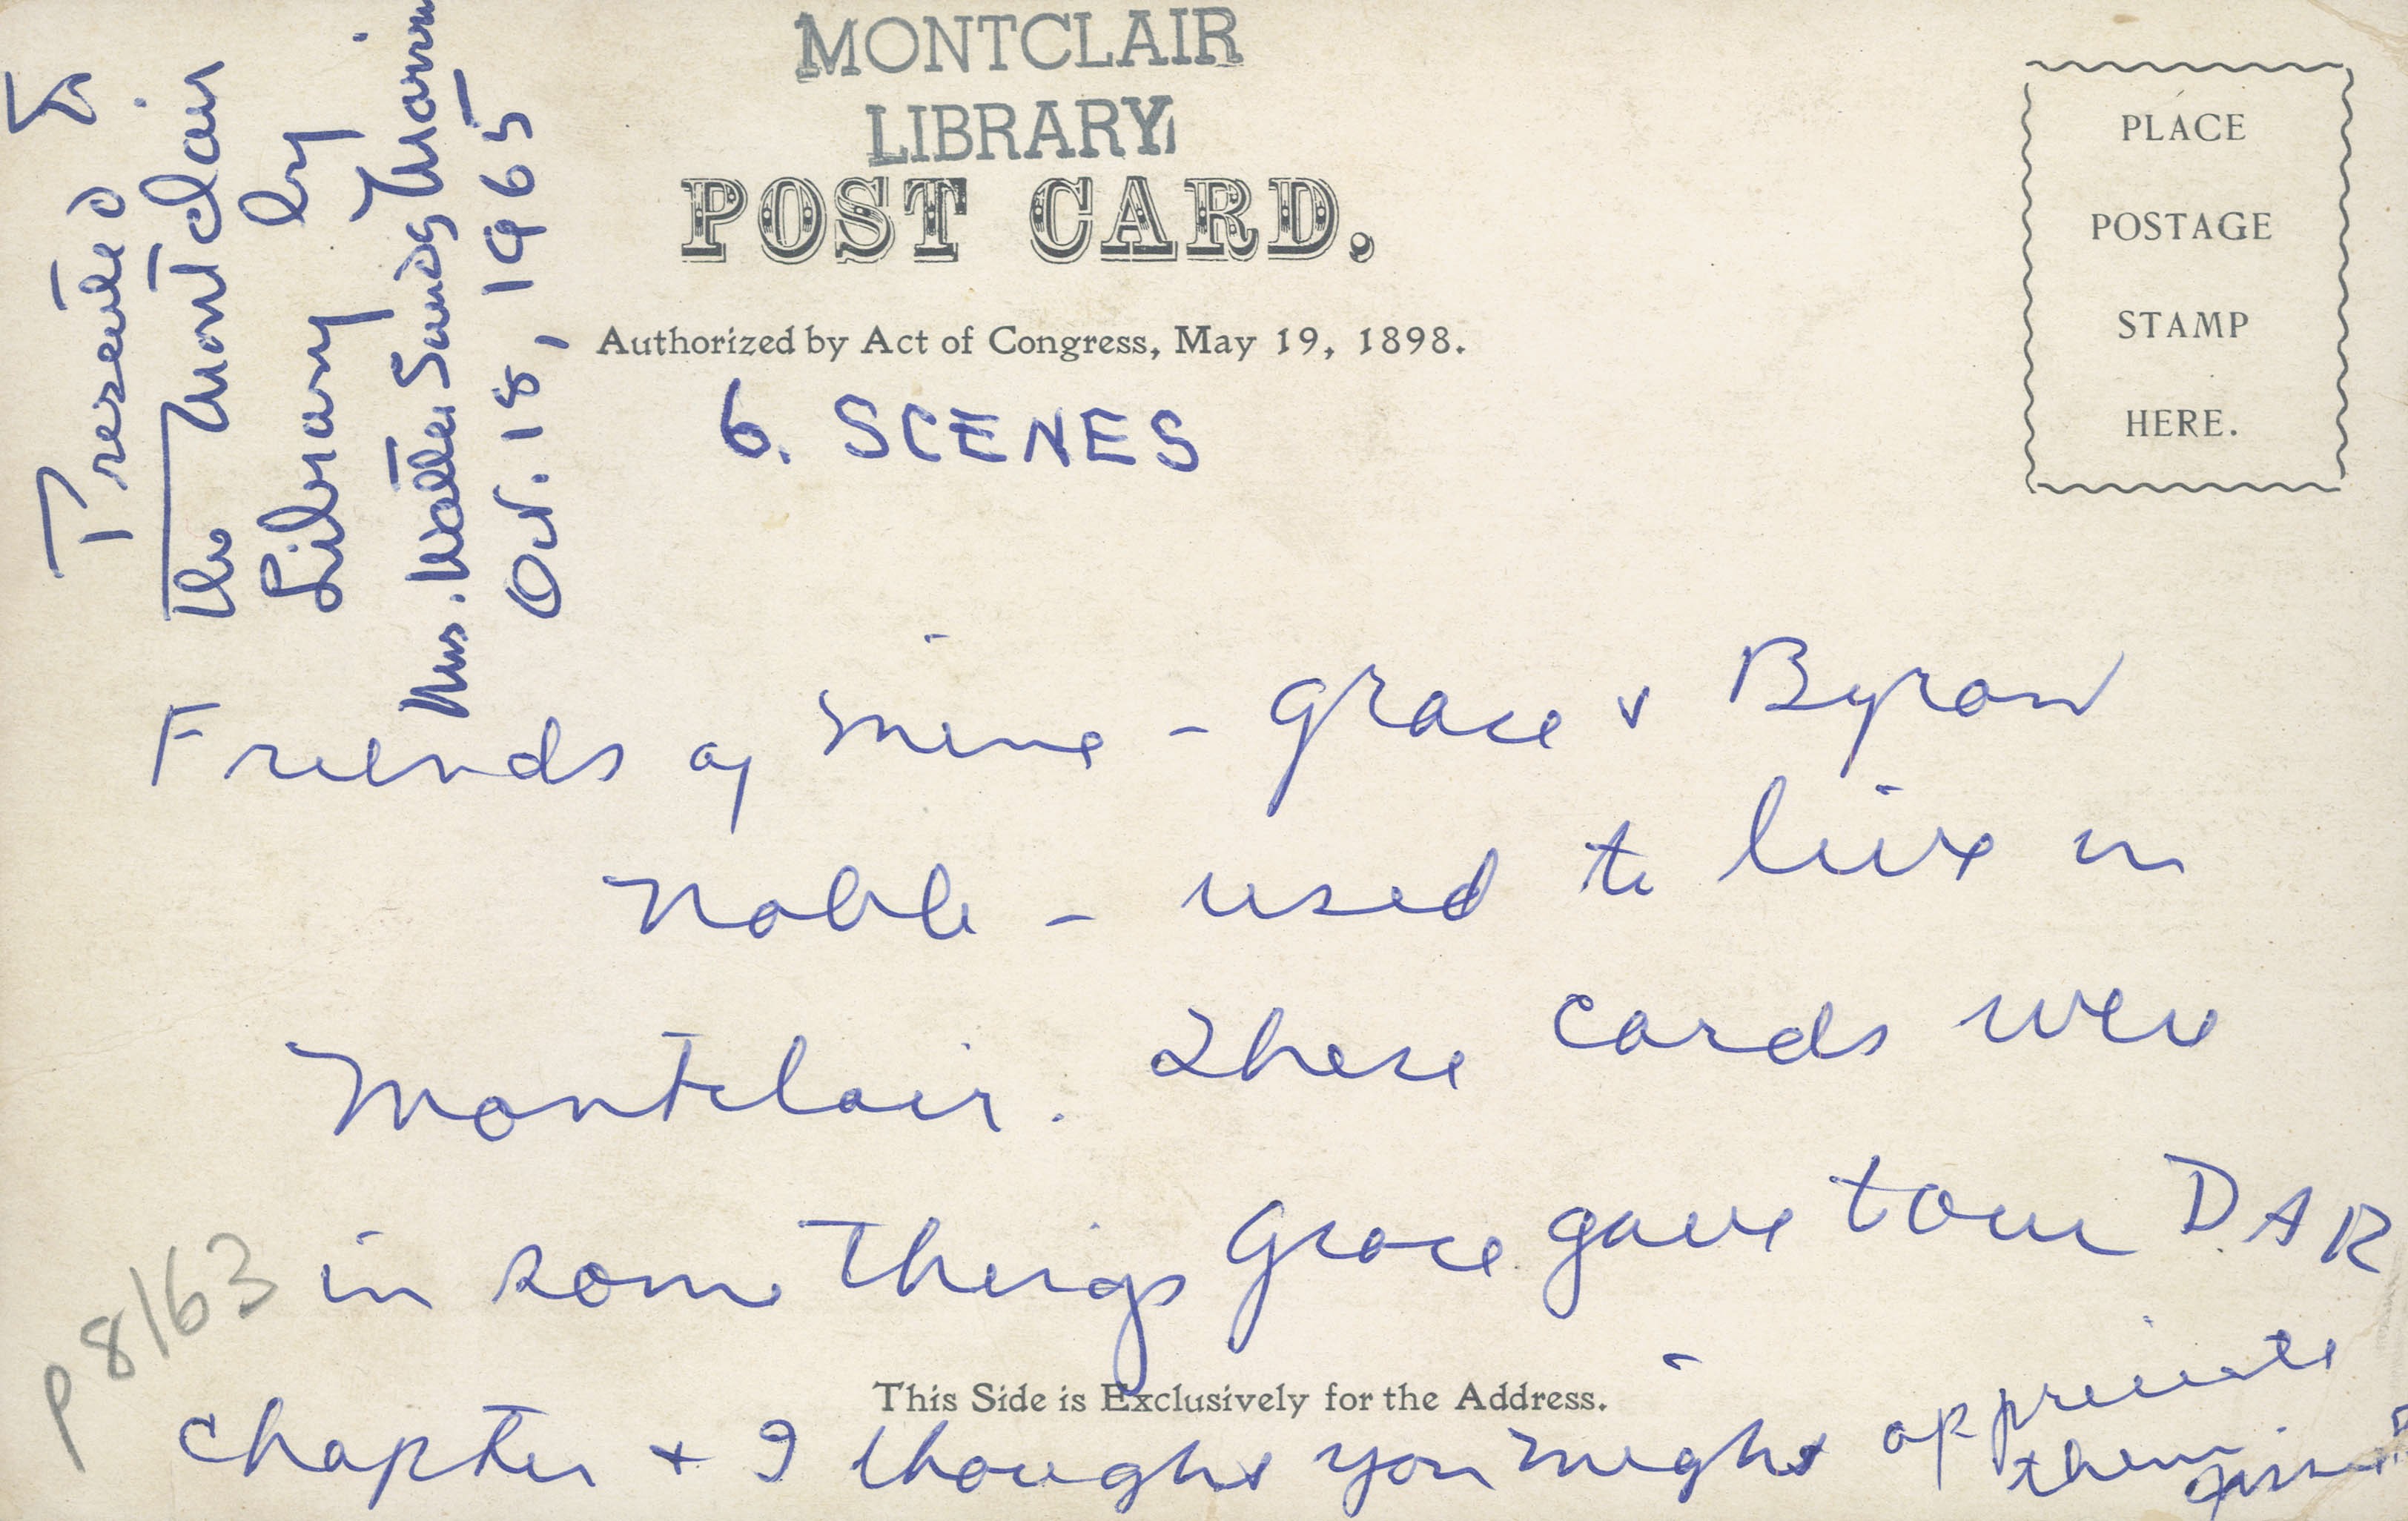 MONTCLAIR
LIBRARY
POST CARD.
Authorized by Act of Congress, May 19, 1898.
PLACE
POSTAGE
STAMP
HERE.
Presented to
the Montclair
Library by
Mrs. Walter Sands
Oct. 18, 1965
6. SCENES
Friends of mine - Grace & Byron
Noble - used to live in
Montclair. These cards were
in some things Grace gave to our D.A.R
This Side is Exclusively for the Address.
chapter + I thought you might appreciate
them
P8163